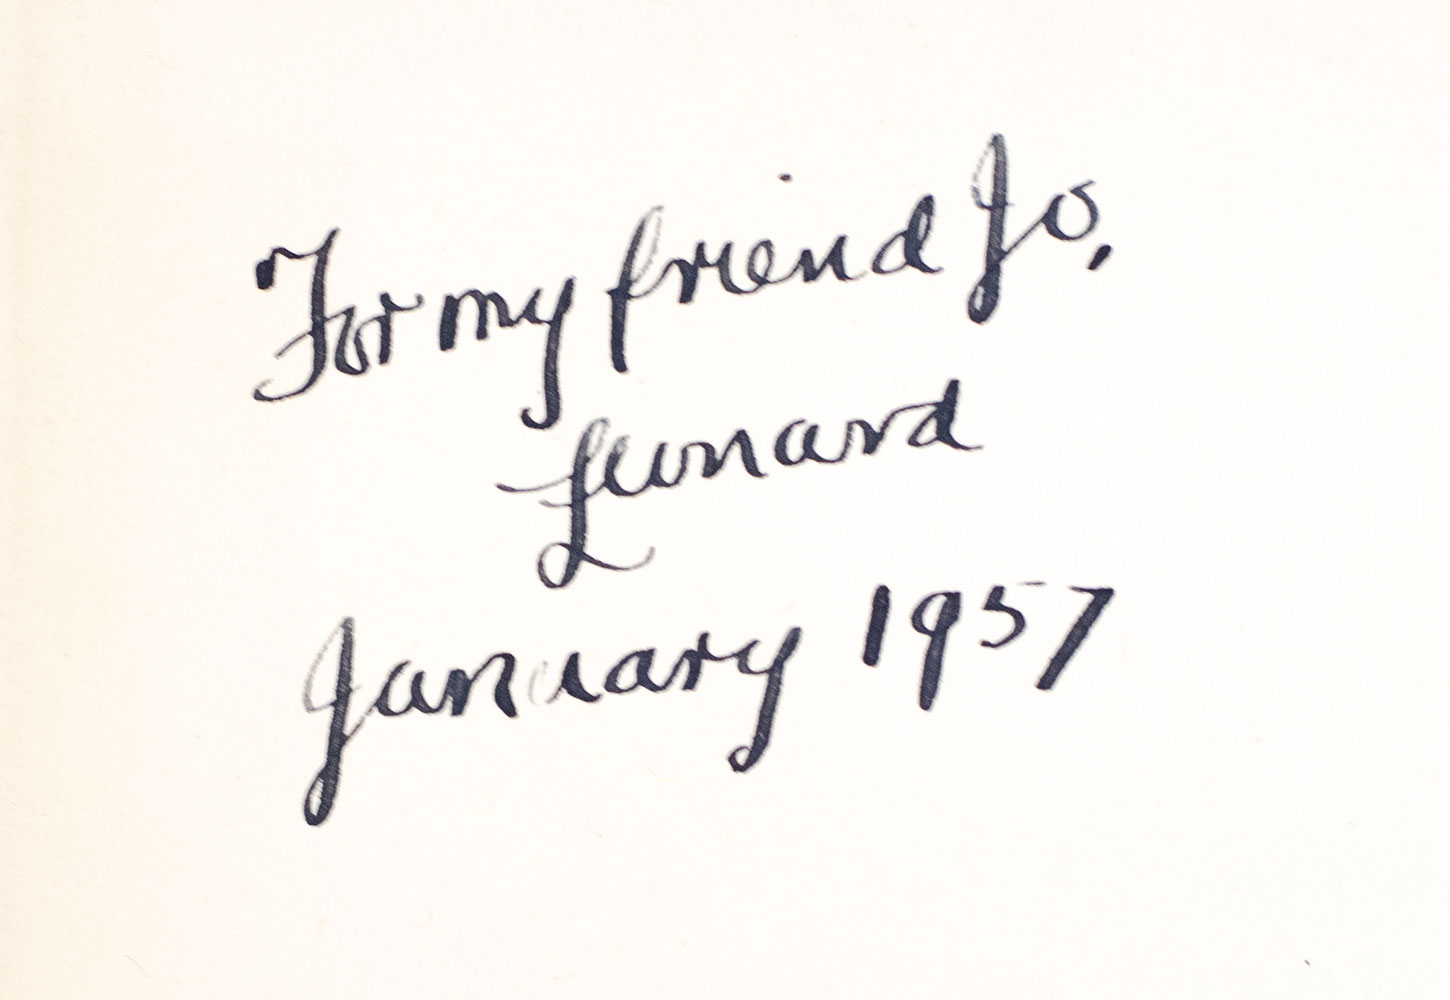 For my friend Jo,
Leonard
January 1957